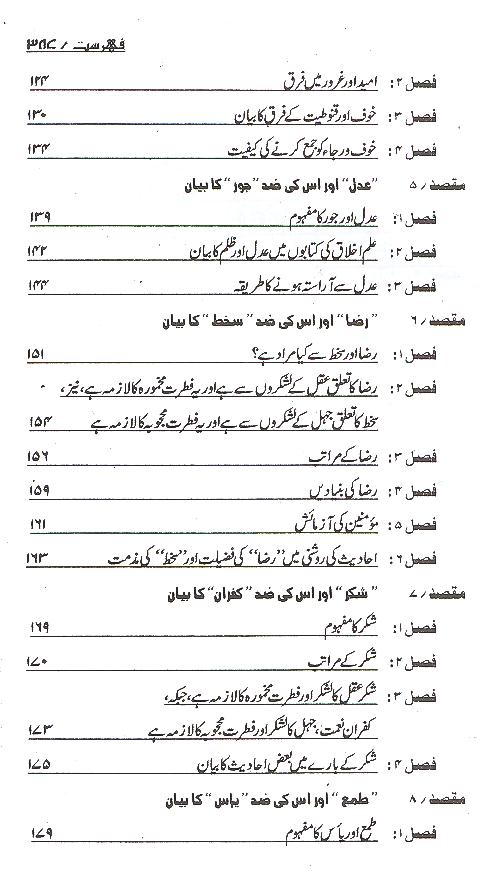 فہرست / ۳۸۷
فصل ۲: امید اور غرور میں فرق ۱۲۴
فصل ۳: خوف اور قنوطیت کے فرق کا بیان ۱۳۰
فصل ۴: خوف و رجاء کو جمع کرنے کی کیفیت ۱۳۴
مقصد / ۵ "عدل" اور اس کی ضد "جور" کا بیان
فصل ۱: عدل اور جور کا مفہوم ۱۳۹
فصل ۲: علم اخلاق کی کتابوں میں عدل اور ظلم کا بیان ۱۴۲
فصل ۳: عدل سے آراستہ ہونے کا طریقہ ۱۴۴
مقصد / ۶ "رضا" اور اس کی ضد "سخط" کا بیان
فصل ۱: رضا اور سخط سے کیا مراد ہے؟ ۱۵۱
فصل ۲: رضا کا تعلق عقل کے لشکروں سے ہے اور یہ فطرت مخمورہ کا لازمہ ہے، نیز،
سخط کا تعلق جہل کے لشکروں سے ہے اور یہ فطرت محجوبہ کا لازمہ ہے ۱۵۴
فصل ۳: رضا کے مراتب ۱۵۶
فصل ۴: رضا کی بنیادیں ۱۵۹
فصل ۵: مؤمنین کی آزمائش ۱۶۱
فصل ۶: احادیث کی روشنی میں "رضا" کی فضیلت اور "سخط" کی مذمت ۱۶۳
مقصد / ۷ "شکر" اور اس کی ضد "کفران" کا بیان
فصل ۱: شکر کا مفہوم ۱۶۹
فصل ۲: شکر کے مراتب ۱۷۰
فصل ۳: شکر عقل کا لشکر اور فطرت مخمورہ کا لازمہ ہے، جبکہ،
کفران نعمت، جہل کا لشکر اور فطرت محجوبہ کا لازمہ ہے ۱۷۳
فصل ۴: شکر کے بارے میں بعض احادیث کا بیان ۱۷۵
مقصد / ۸ "طمع" اور اس کی ضد "یاس" کا بیان
فصل ۱: طمع اور یأس کا مفہوم ۱۷۹